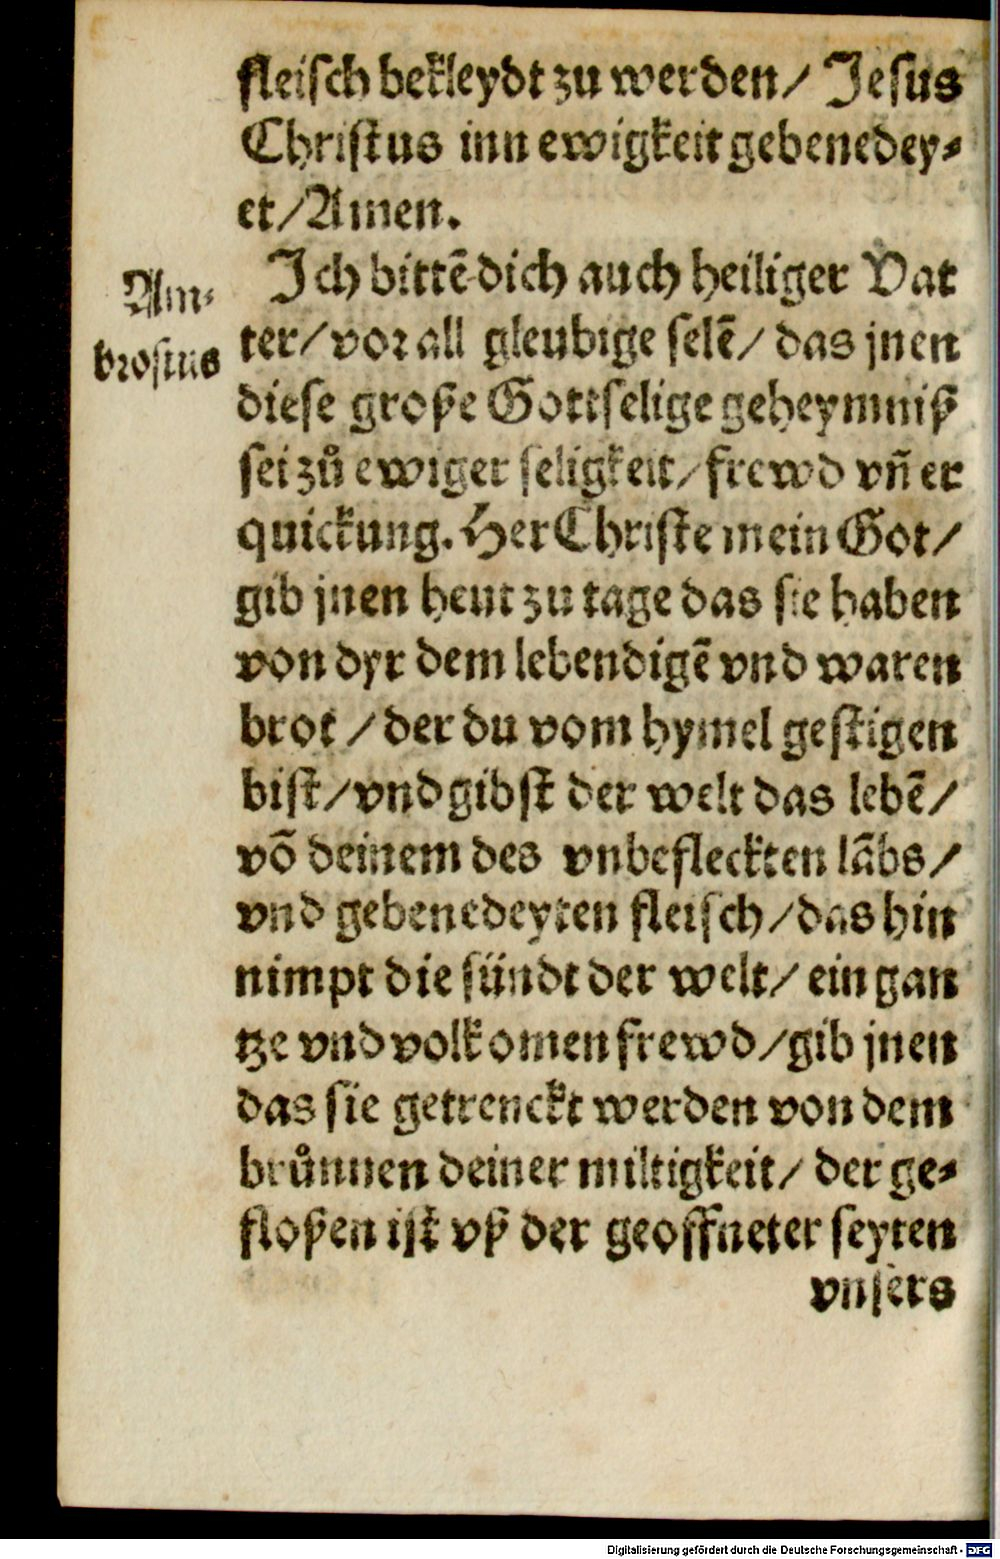 fleisch bekleydt zu werden/ Jesus
Christus inn ewigkeit gebenedey⸗
et/Amen.
Ich bittē dich auch heiliger Vat
Am⸗
brosius
ter/vor all gleubige selē/ das jnen
diese große Gottselige geheymniß
sei zů ewiger seligkeit/frewd vñ er
quickung. Her Christe mein Got/
gib jnen heut zu tage das sie haben
von dyr dem lebendigē vnd waren
brot /der du vom hymel gestigen
bist/vnd gibst der welt das lebē/
vō deinem des vnbefleckten lābs/
vnd gebenedeyten fleisch/das hin
nimpt die sündt der welt/ ein gan
tze vnd volkomen frewd/gib jnen
das sie getrenckt werden von dem
brůnnen deiner miltigkeit/ der ge⸗
floßen ist vß der geoffneter seyten
vnsers
Digitalisierung gefördert durch die Deutsche Forschungsgemeinschaft - DFG